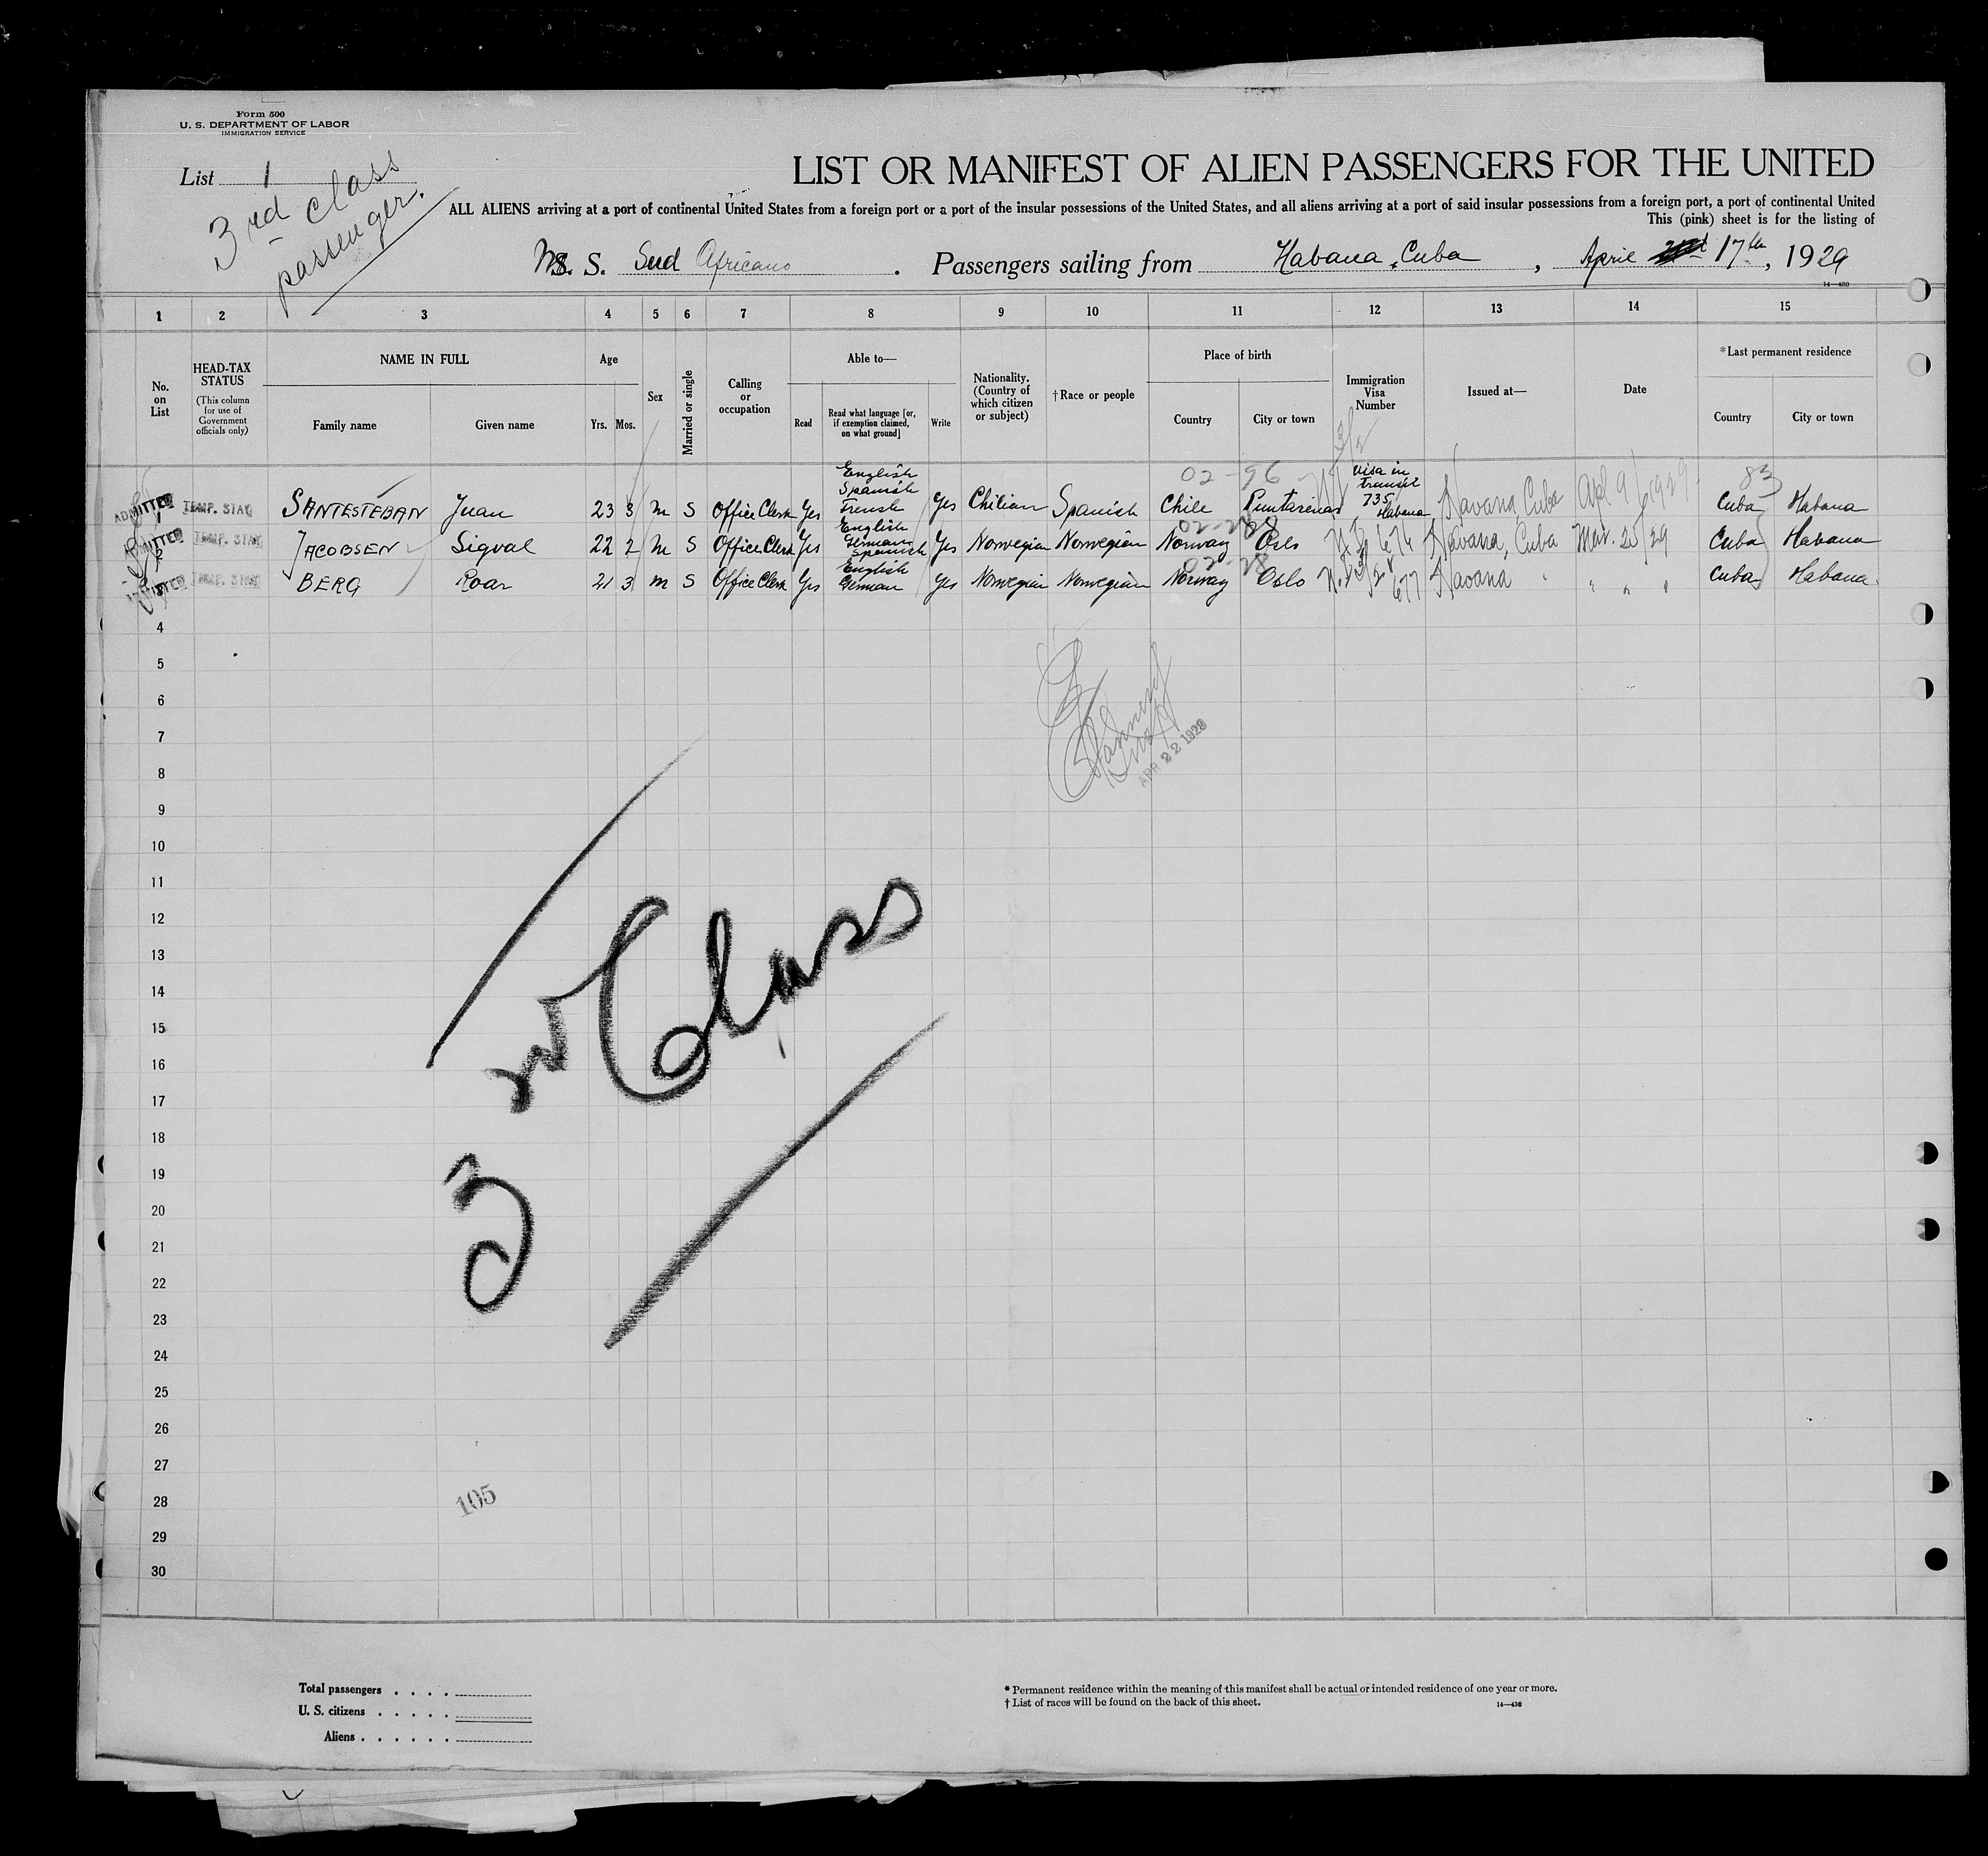 Form 500
U. S. DEPARTMENT OF LABOR
IMMIGRATION SERVICE
List 1
3rd class
passenger.
LIST OR MANIFEST OF ALIEN PASSENGERS FOR THE UNITED
ALL ALIENS arriving at a port of continental United States from a foreign port or a port of the insular possessions of the United States, and all aliens arriving at a port of said insular possessions from a foreign port, a port of continental United
This (pink) sheet is for the listing of
M. S. Sud Africano . Passengers sailing from Habana, Cuba , April 17th, 1929
14—430
1 2 3 4 5 6 7 8 9 10 11 12 13 14 15
No. on List
HEAD-TAX STATUS (This column for use of Government officials only)
NAME IN FULL
Family name Given name
Age
Yrs. Mos.
Sex
Married or single
Calling or occupation
Able to—
Read
Read what language [or, if exemption claimed, on what ground]
Write
Nationality. (Country of which citizen or subject)
† Race or people
Place of birth
Country City or town
Immigration Visa Number
Issued at—
Date
* Last permanent residence
Country City or town
02-96 83
ADMITTED 1 TEMP. STAY SANTESTEBAN Juan 23 3 m S Office Clerk Yes English Spanish French Yes Chilian Spanish Chile Puntarenas Visa in transit 735 Habana Havana, Cuba Apl 9/1929 Cuba Habana
ADMITTED 2 TEMP. STAY JACOBSEN Sigval 22 2 m S Office Clerk Yes English German Spanish Yes Norwegian Norwegian Norway Oslo 676 Havana, Cuba Mar. 25/29 Cuba Habana
ADMITTED 3 TEMP. STAY BERG Roar 21 3 m S Office Clerk Yes English German Yes Norwegian Norwegian Norway Oslo 677 Havana " " " " Cuba Habana
4
5
6
7
APR 22 1929
8
9
10
11
12
13
14
15
16
17
18
19
20
21
22
23
24
25
26
27
28
29
30
3rd Class
105
Total passengers
U. S. citizens
Aliens
* Permanent residence within the meaning of this manifest shall be actual or intended residence of one year or more.
† List of races will be found on the back of this sheet.
14—430